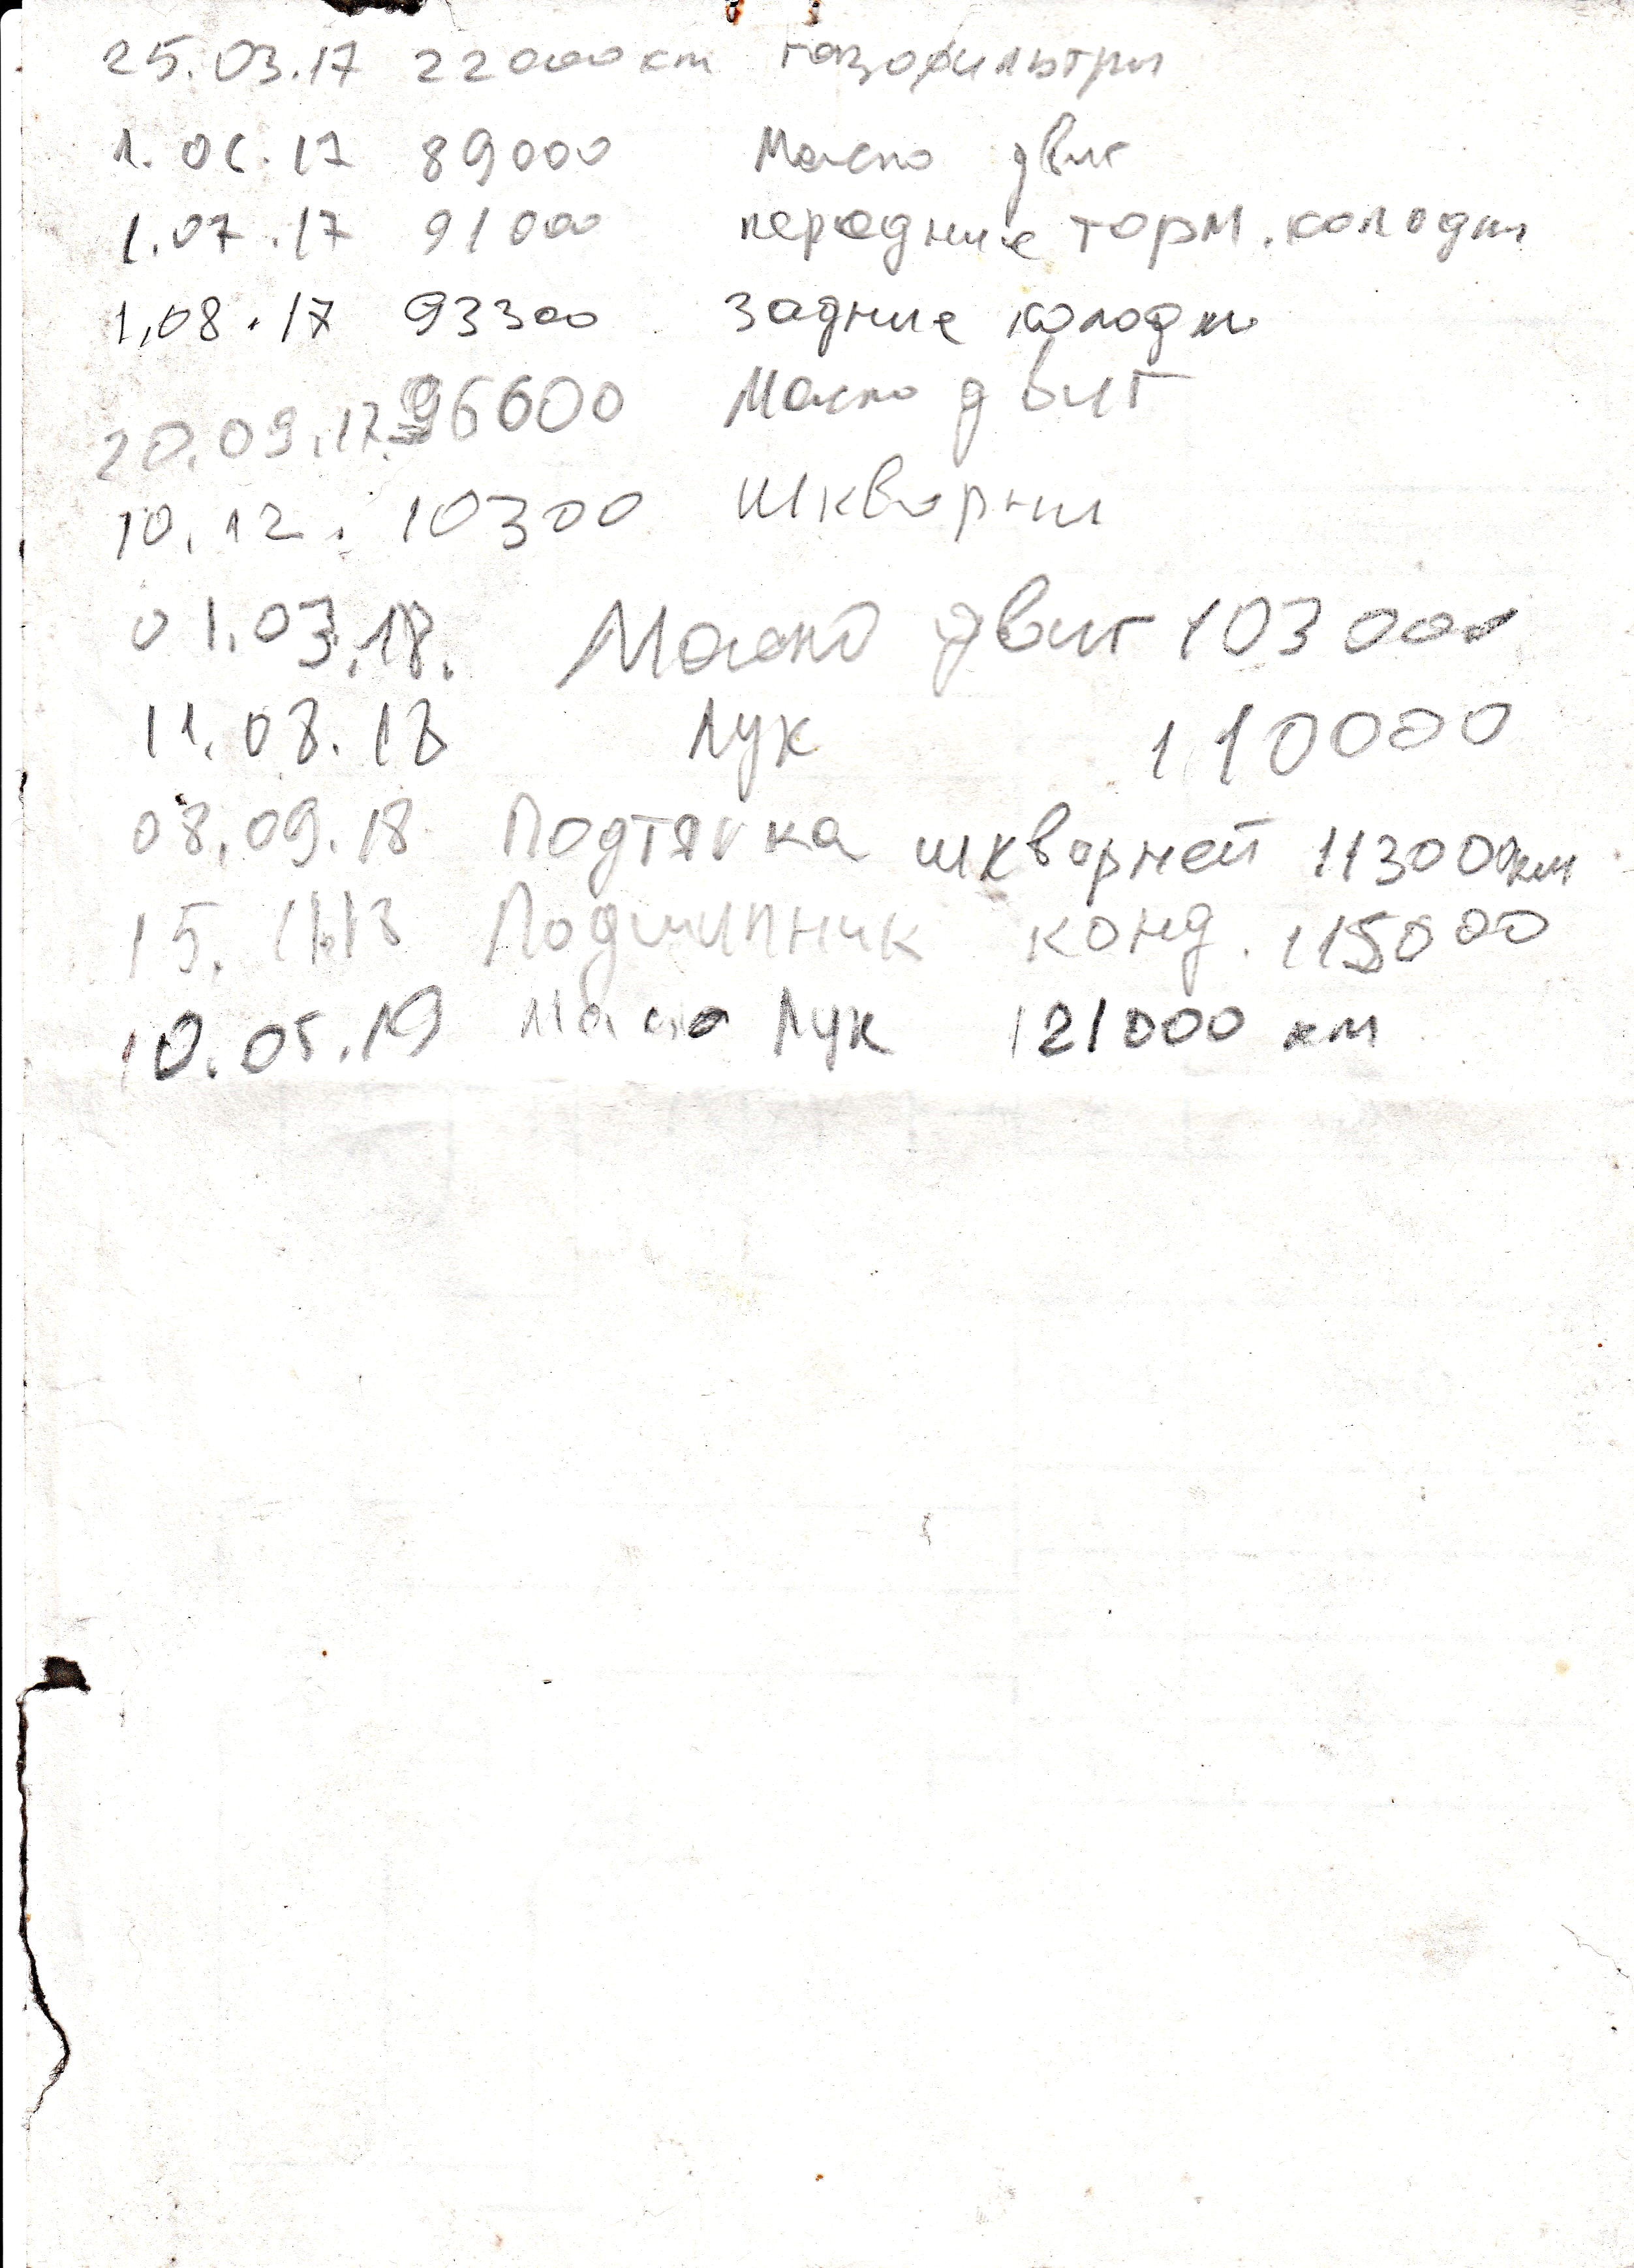 25.03.17 22000км газофильтри
1.06.17 89000 Масло двиг
1.07.17 91000 передние торм. колодки
1,08.17 93300 Задние колодки
20.09.17. 96600 Масло двиг
10.12. 10300 Шкворни
01.03.18. Масло двиг 103000
11.08.18 Лук 110000
08.09.18 Подтяжка шкворней 113000км
15.11.18 Подшипник конд. 115000
10.05.19 Масло Лук 121000 км